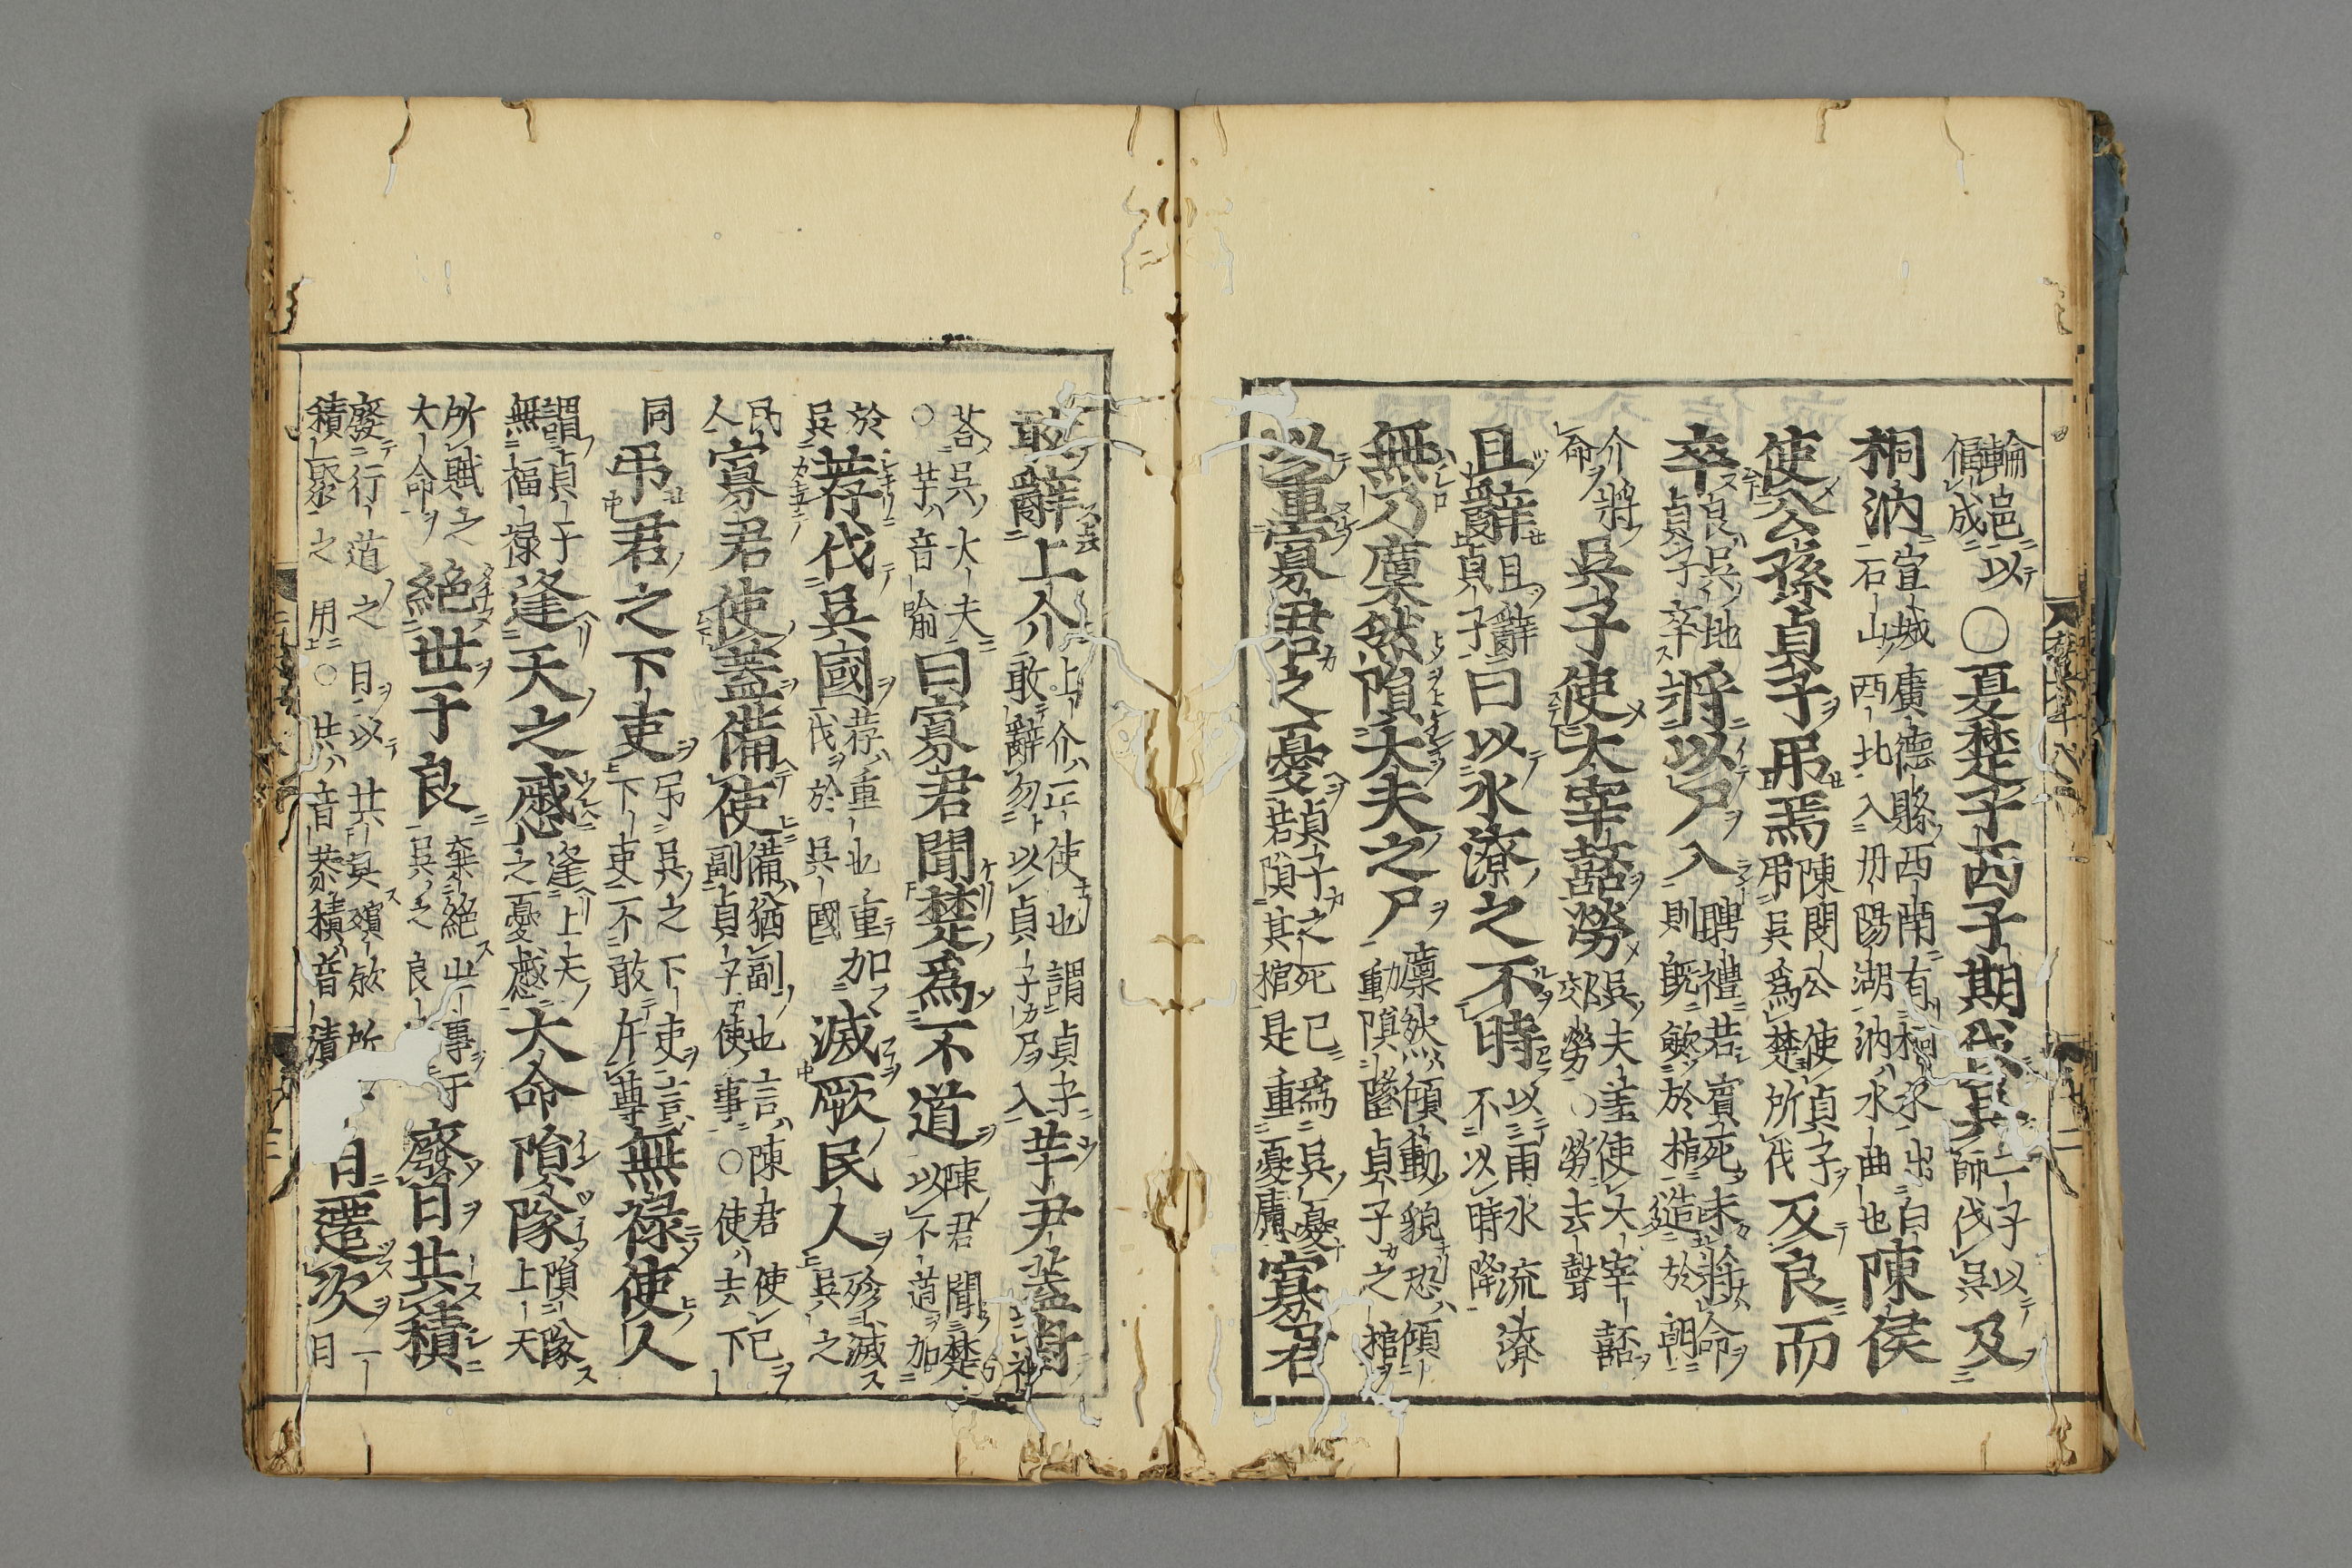 輪邑以
偪成
〇夏楚子西子期伐吳及
二子以
師伐吳
桐汭
宣城廣德縣西南有桐水出白
石山西北入丹陽湖汭水曲也
陳侯
使公孫貞子弔焉
陳閔公使貞子
弔吳爲楚所伐
及良而
卒
良吳地
貞子卒
將以尸入
聘禮若賓死未將命
則既斂於棺造於朝
介將
命
吳子使大宰嚭勞
吳夫差使大宰嚭
郊勞〇勞去聲
且辭
且辭
貞子
曰以水潦之不時
以雨水流潦
不以時降
無乃廩然隕大夫之尸
廩然傾動貌恐傾
動隕墜貞子之棺
以重寡君之憂
貞子之死已爲吳憂
若隕其棺是重憂虞
寡君
敢辭上介
上介正使也謂貞子
敢辭勿以貞子尸入
芋尹蓋對
荅吳大夫
〇芋音喻
曰寡君聞楚爲不道
陳君聞楚
以不道加
於
吳
荐伐吳國
荐重也重加
伐於吳國
滅厥民人
殄滅
吳之
民
人
寡君使蓋備使
備猶副也言陳君使已
副貞子使事〇使去下
同
弔君之下吏
弔吳之下吏言
下吏不敢斥尊
無祿使人
謂貞子
無福祿
逢天之慼
逢上天
之憂慼
大命隕隊
隕隊
上天
所賦之
大命
絕世于良
棄絕事于
吳之良
廢日共積
廢行道之日以共具殯斂所
積聚之用〇共音恭積音漬
日遷次
一
日